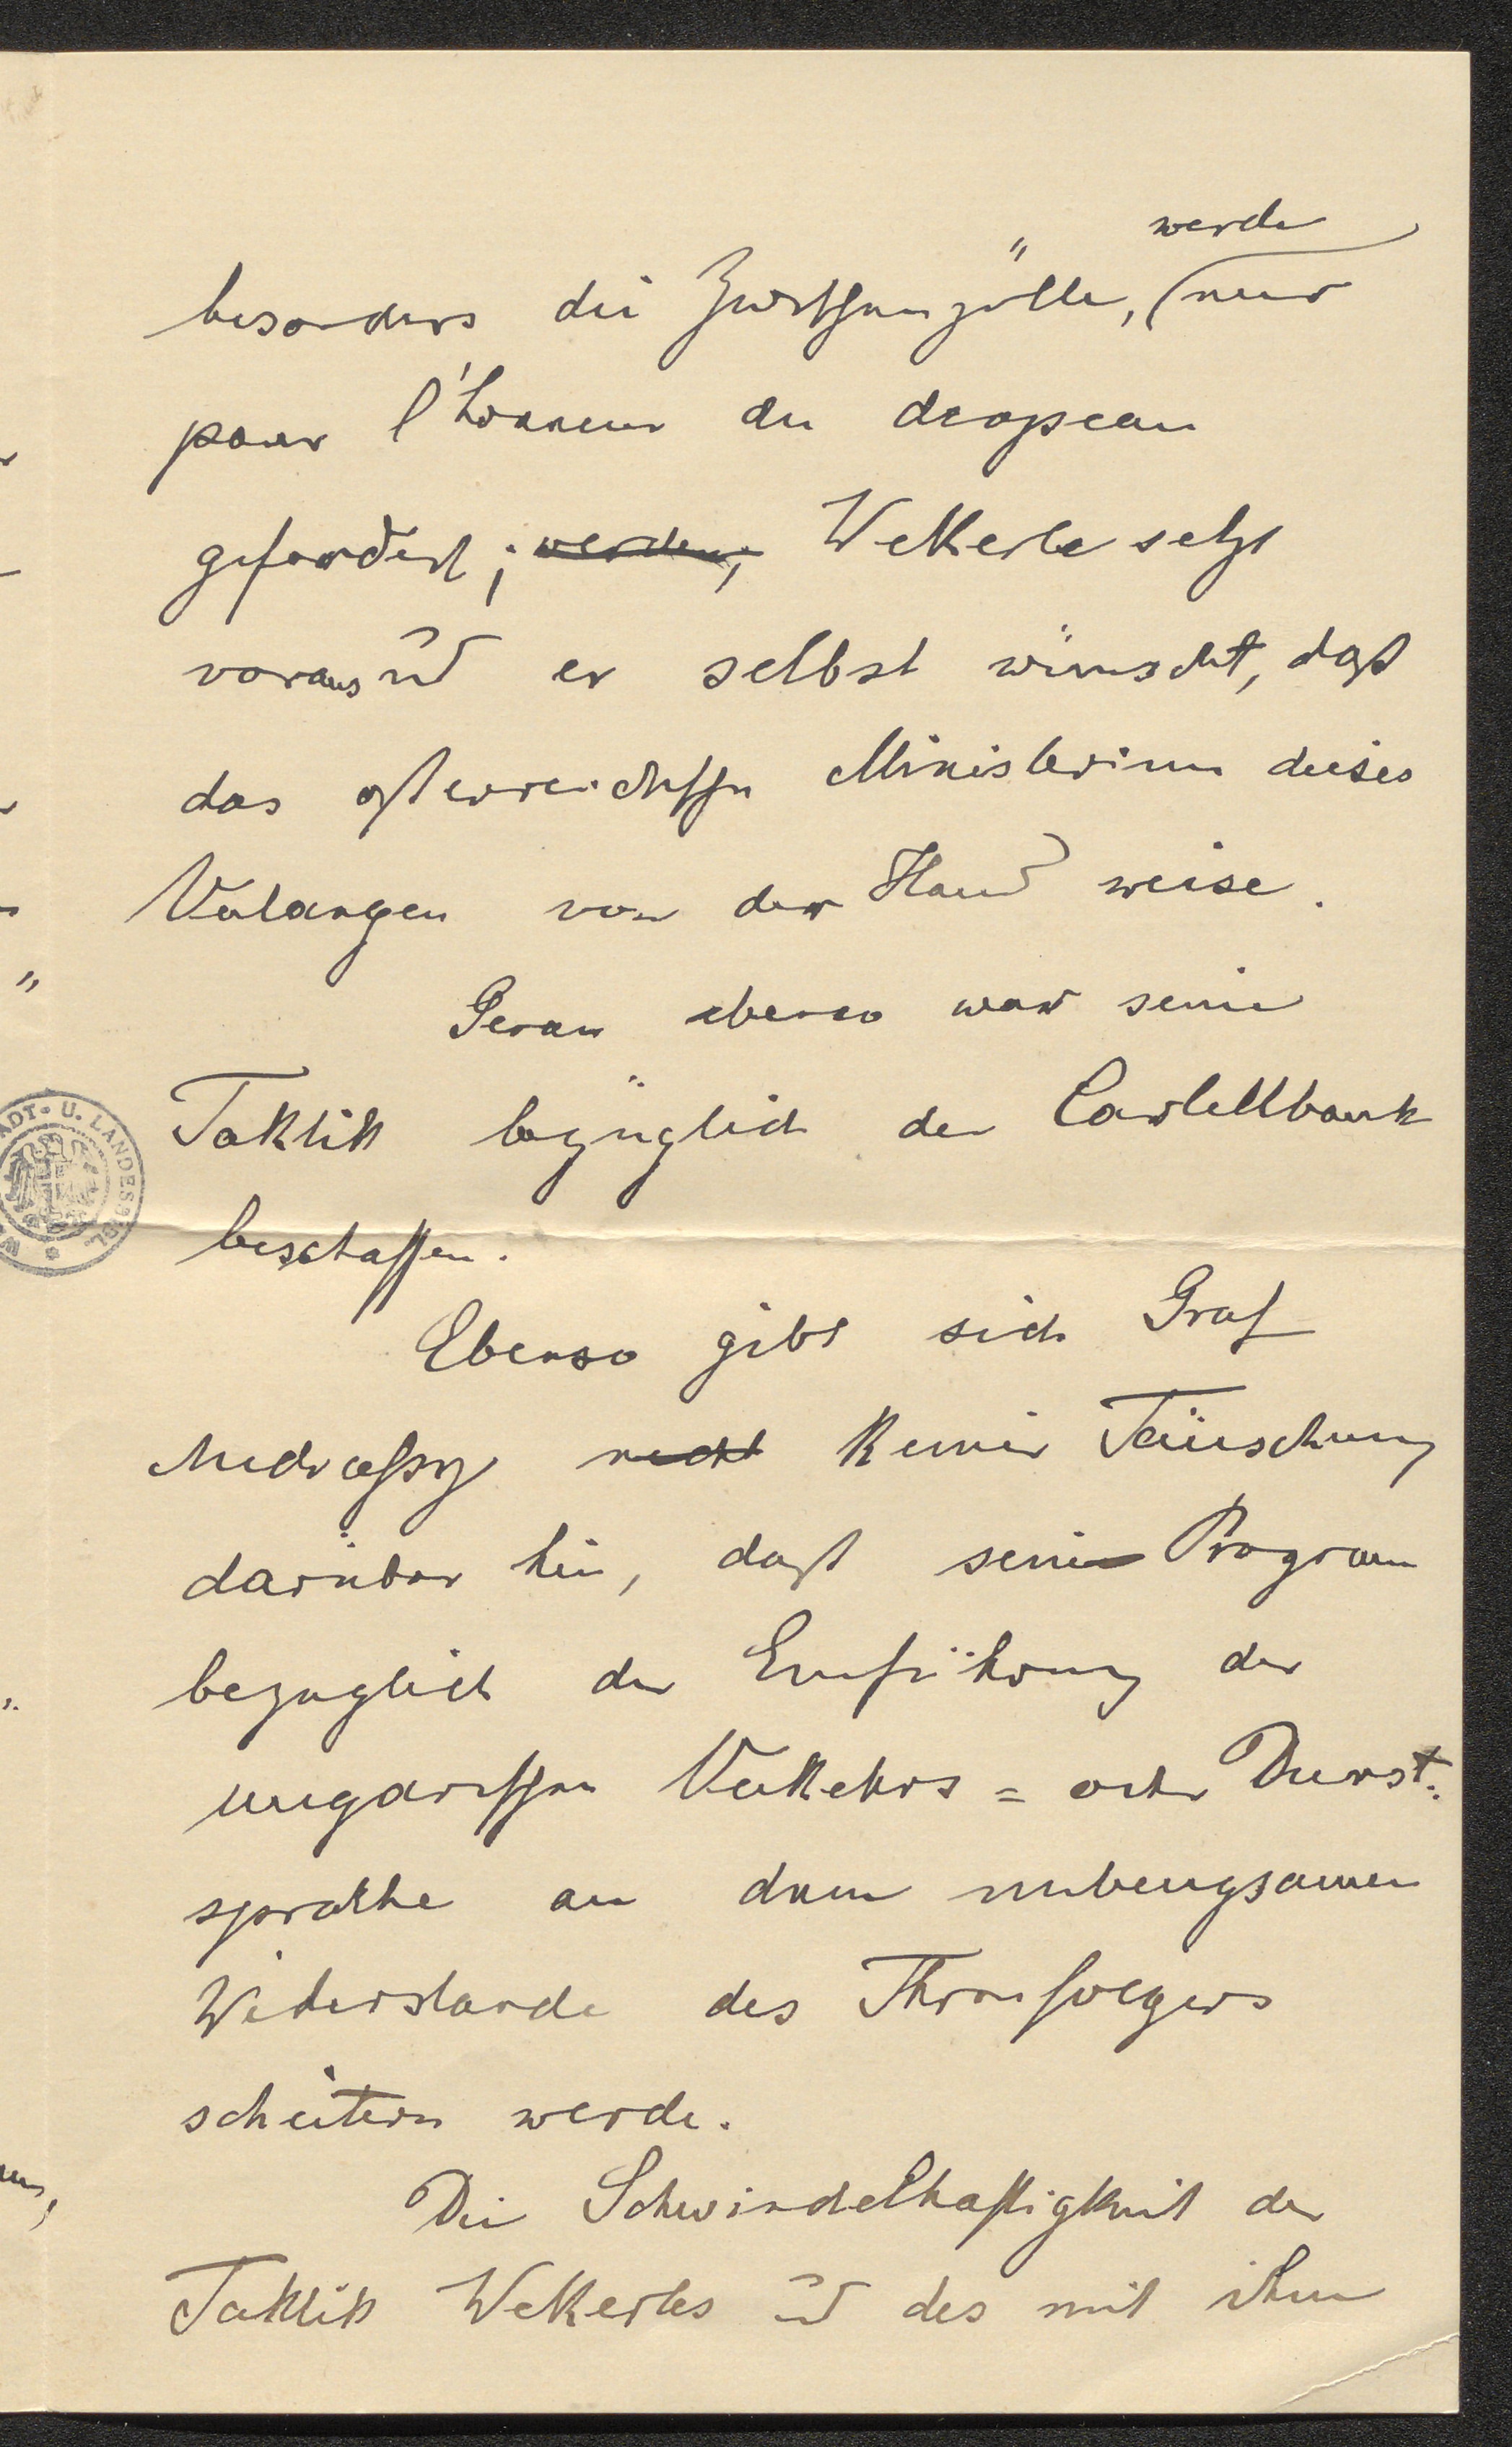 werde
besonders die Zwischenzölle, nur
pour l'honneur du drapeau
gefordert; werden, Wekerle setzt
voraus und er selbst wünscht, daß
das österreichische Ministerium dieses
Verlangen von der Hand weise.
Genau ebenso war seine
Taktik bezüglich der Cartellbank
beschaffen.
Ebenso gibt sich Graf
Andrassy nicht keiner Täuschung
darüber hin, daß sein Program
bezüglich der Einführung der
ungarischen Verkehrs= oder Dienst=
sprache an dem unbeugsamen
Widerstande des Thronfolgers
scheitern werde.
Die Schwindelhaftigkeit der
Taktik Wekerles und des mit ihm
STADT- U. LANDESBIBL.